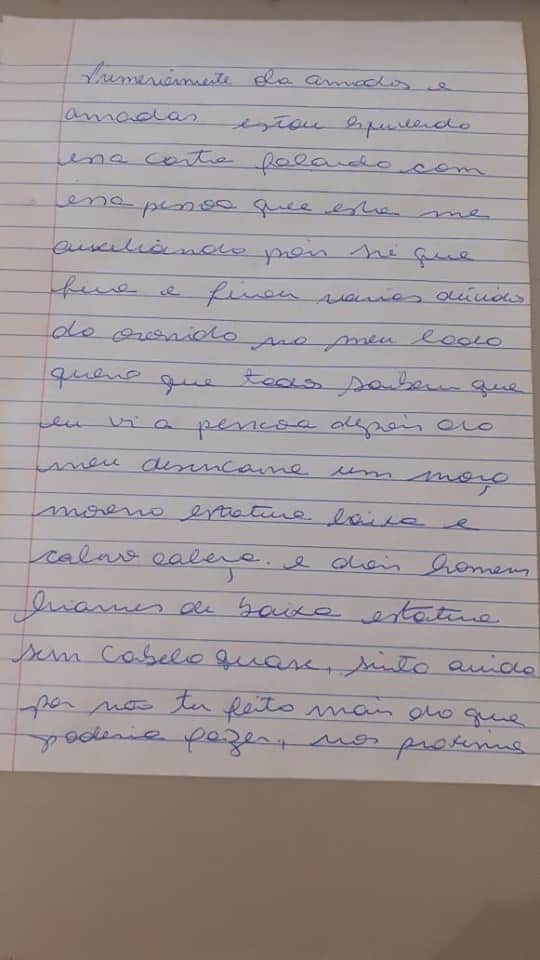 Primeiramente da amados e
amadas estou
essa carta falando com
essa pessoa que esta me
auxiliando pois sei que
fica e ficou varias dúvidas
do ocorrido no meu
quero que todos saibam que
eu vi a pessoa depois do
meu desencarne um moço
moreno estatura baixa e
calvo cabeça. e dois homem
de baixa estatura
sem cabelo quase, sinto ainda
por não ter feito mais do que
poderia fazer, nos proximu